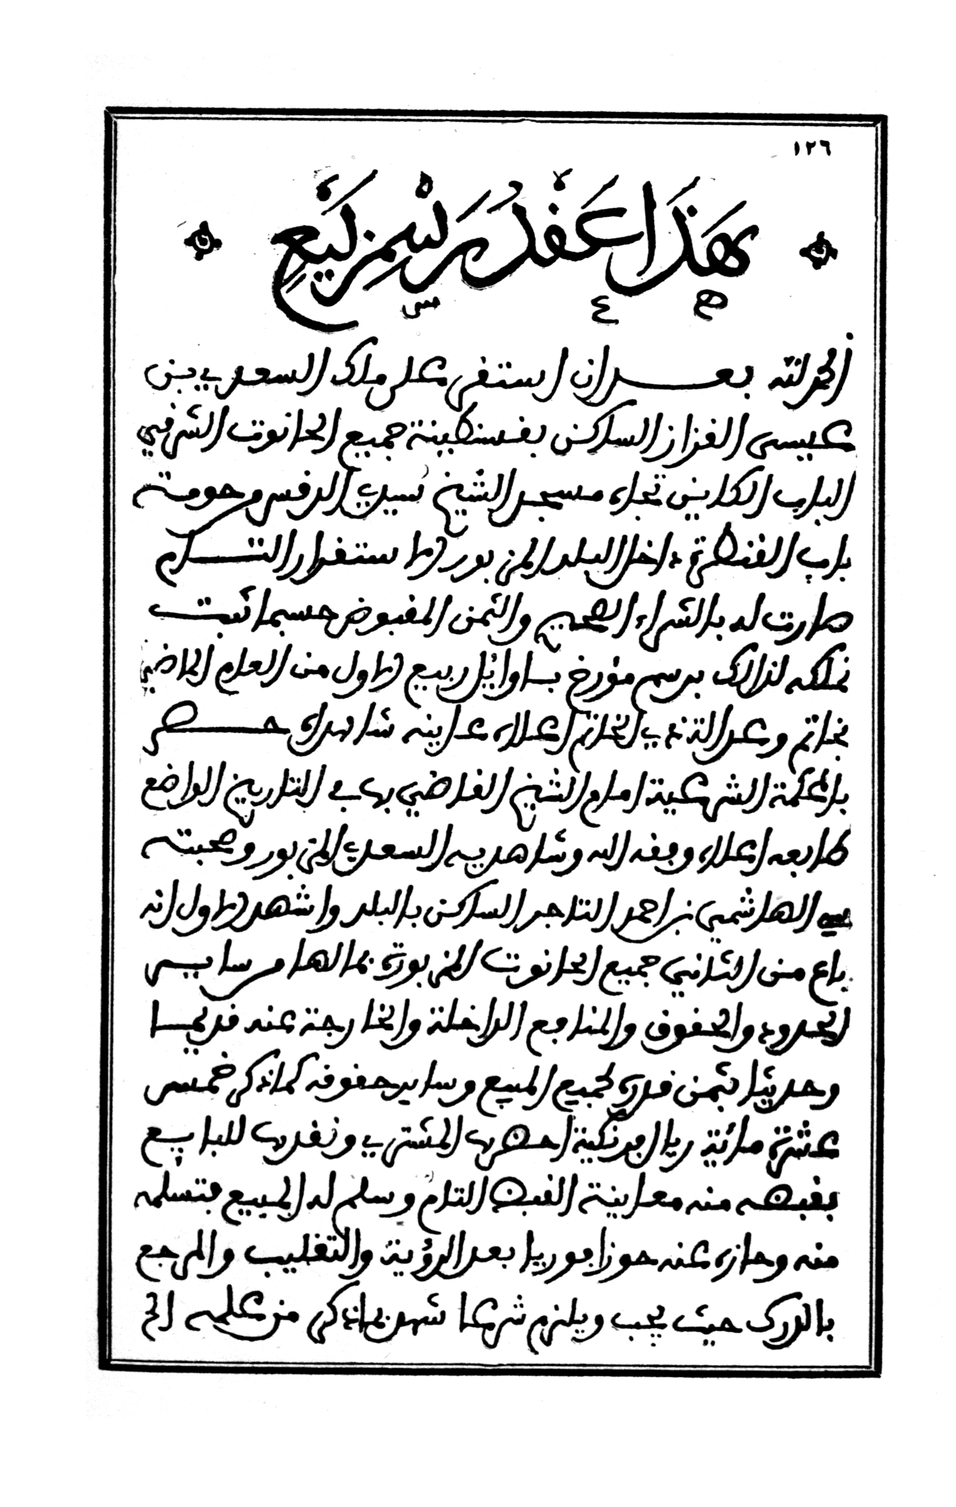 ١٢٦
هَذَا عَقْدُ رَسْمِ بَيْعٍ
ه ع س
الحمد لله بعد ان استقر على ملك السعدي بن
عيسى القزاز الساكن بقسنطينة جميع الحانوت الشرقي
الباب الكاين تجاه مسجد الشيخ سيدي الرفس وحومته
باب القنطرة داخل البلد المزبور الاستقرار التام
صارت له بالشراء الصحيح والثمن المقبوض حسبما ثبت
تملكه لذالك برسم مؤرخ باوايل ربيع الاول من العام الماضي
بخاتم وعدالة ذي الخاتم اعلاه عاينه شاهداه حضر
بالمحكمة الشرعية امام الشيخ القاضي بها في التاريخ الواضع
طابعه اعلاه وفقه الله وشاهديه السعدي المزبور وصحبته
سي الهاشمي بن احمد التاجر الساكن بالبلد واشهد الاول انه
باع من الثاني جميع الحانوت المزبورة بما لها من ساير
الحدود والحقوق والمنافع الداخلة والخارجة عنه قديما
وحديثا بثمن قدره لجميع المبيع وساير حقوقه كما ذكر خمس
عشرة مائة ريال دورية احضرها المشتري ونقدها للبايع
بقبضه منه معاينة القبض التام وسلم له المبيع فتسلمه
منه وحازه عنه حوزا فوريا بعد الرؤية والتقليب والمرجع
بالدرك حيث يجب ويلزم شرعا شهد بما ذكر من علمه الخ